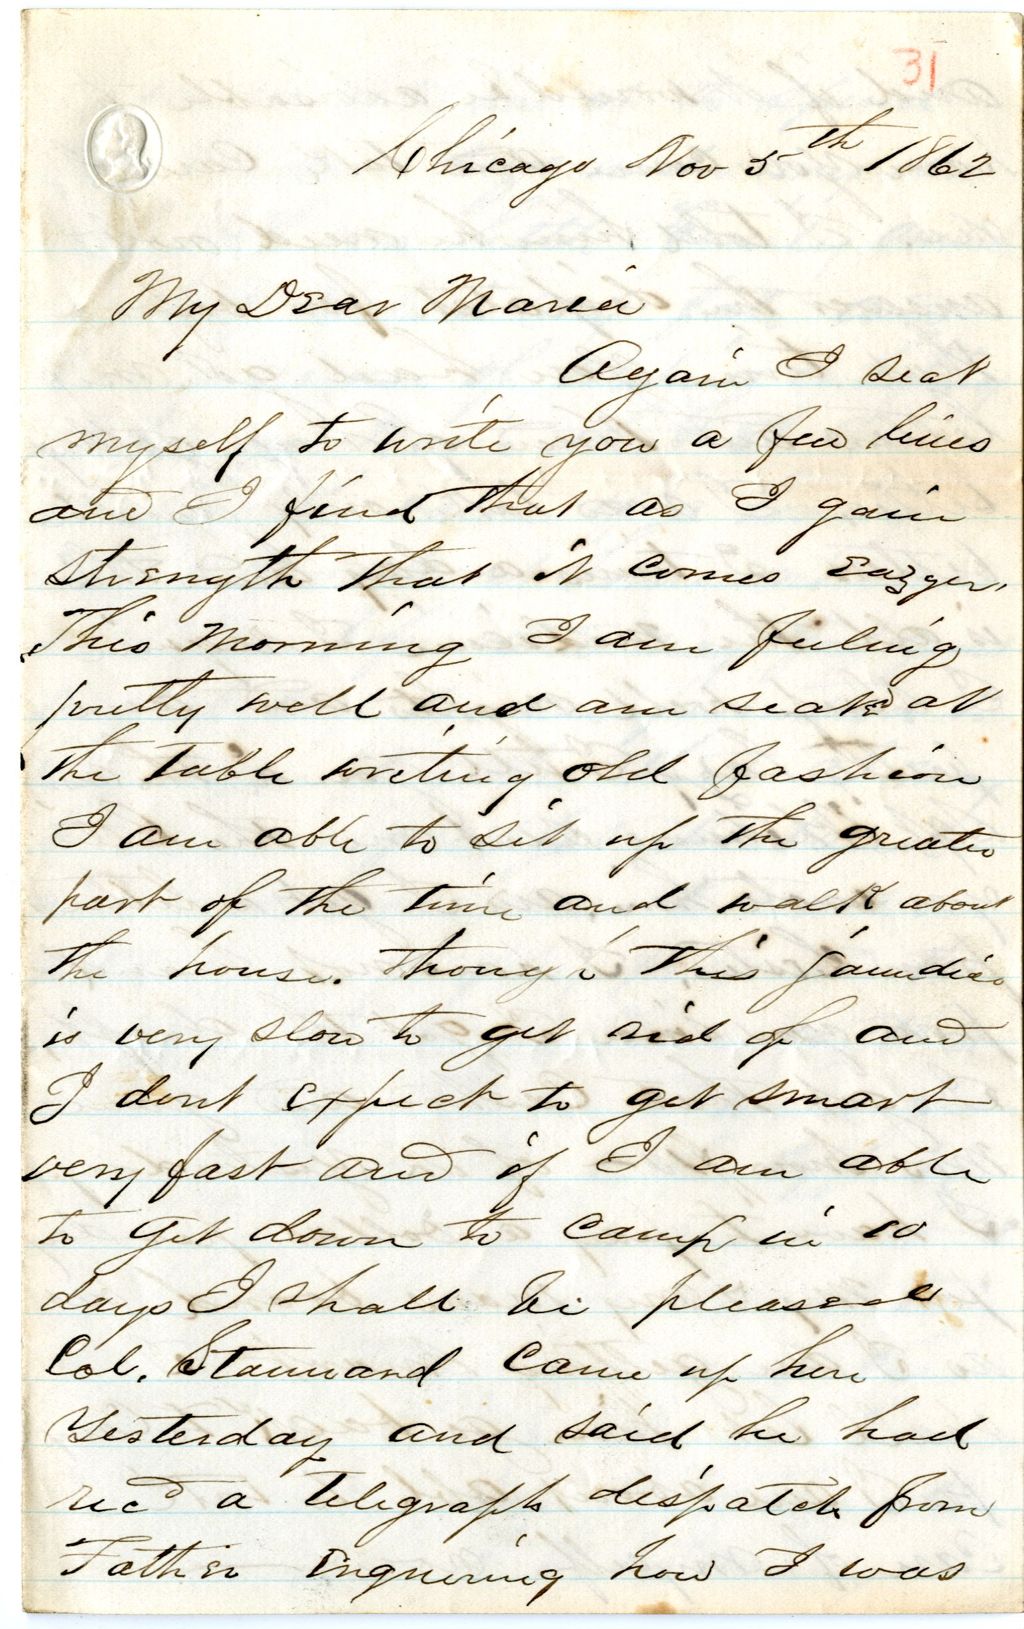 31
Chicago Nov 5th 1862
My Dear Maria
Again I seat
myself to write you a few lines
and I find that as I gain
strength that it comes eazyer,
This morning I am feeling
pretty well and am seated at
the table writing old fashion
I am able to sit up the greater
part of the time and walk about
the house. though this jaundice
is very slow to get rid of and
I dont expect to get smart
very fast and if I am able
to get down to camp in 10
days I shall be pleased
Col. Stannard came up here
yesterday and said he had
recd a telegraph dispatch from
Father enquiring how I was